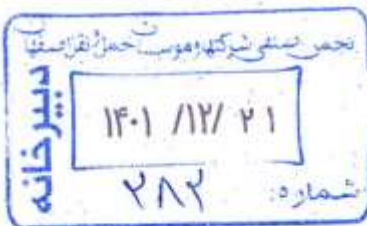 انجمن صنفی شرکتها و موسسات حمل و نقل اصفهان
دبیرخانه
۱۴۰۱ /۱۲/ ۲۱
شماره: ۲۸۲